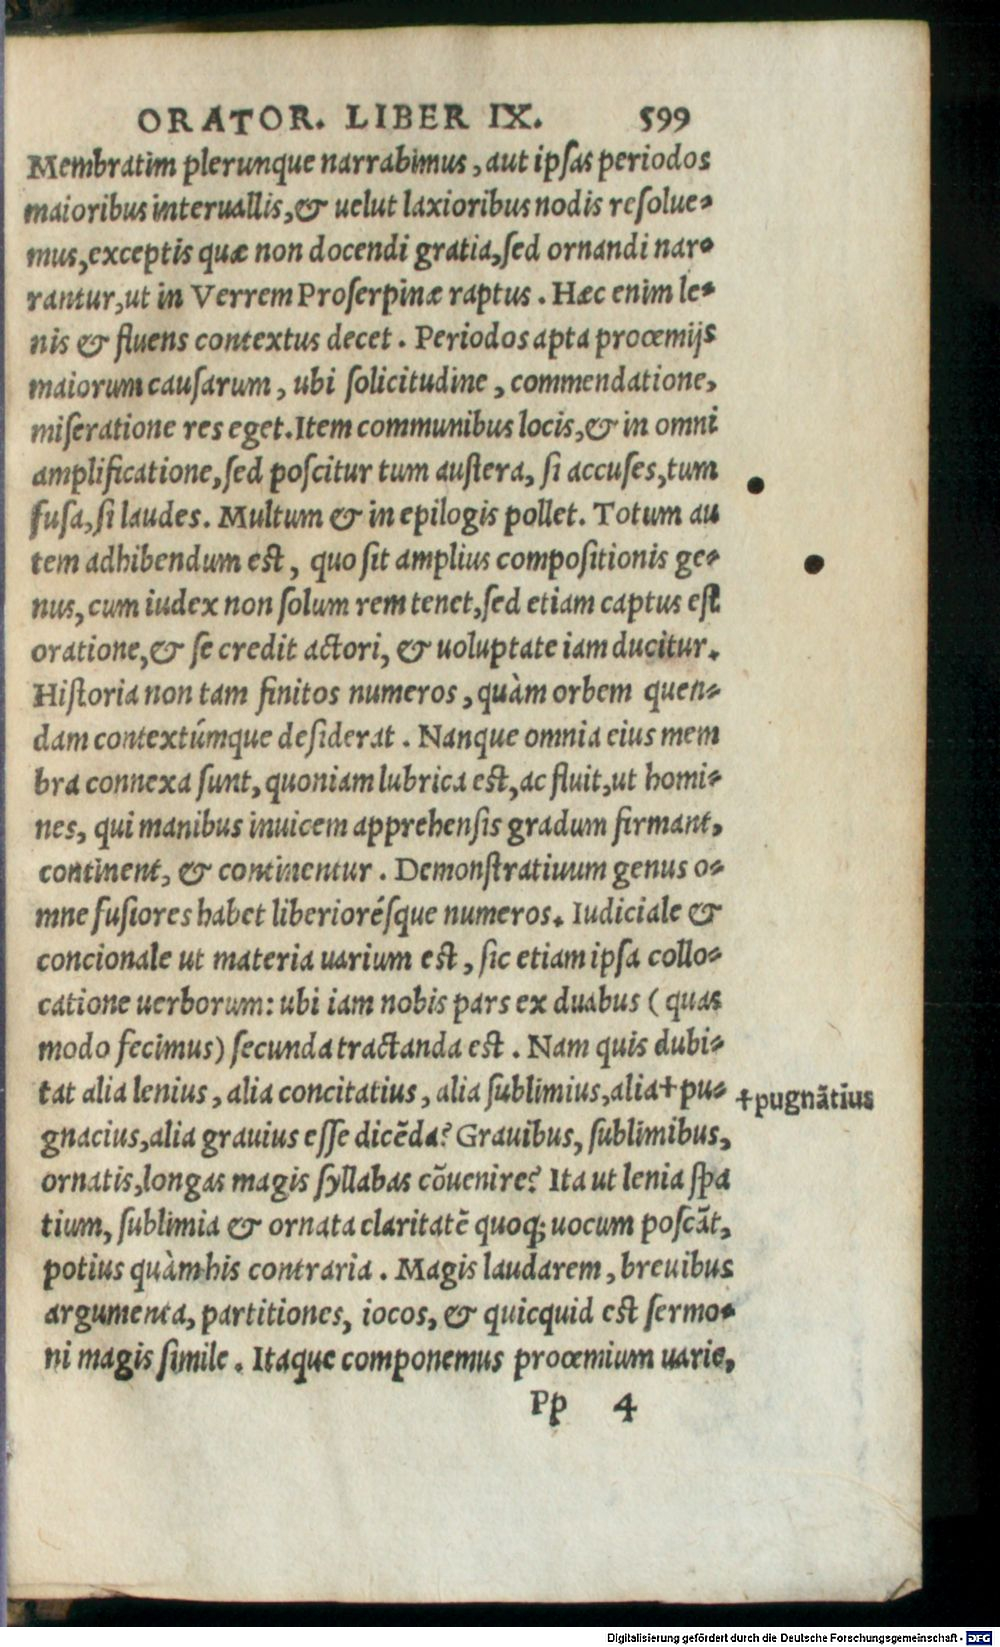 ORATOR. LIBER IX. 599
Membratim plerunque narrabimus, aut ipsas periodos
maioribus interuallis, & uelut laxioribus nodis resolue-
mus, exceptis quæ non docendi gratia, sed ornandi nar-
rantur, ut in Verrem Proserpinæ raptus. Hæc enim le-
nis & fluens contextus decet. Periodos apta proœmijs
maiorum causarum, ubi solicitudine, commendatione,
miseratione res eget. Item communibus locis, & in omni
amplificatione, sed poscitur tum austera, si accuses, tum
fusa, si laudes. Multum & in epilogis pollet. Totum au
tem adhibendum est, quo sit amplius compositionis ge-
nus, cum iudex non solum rem tenet, sed etiam captus est
oratione, & se credit actori, & uoluptate iam ducitur.
Historia non tam finitos numeros, quàm orbem quen-
dam contextúmque desiderat. Nanque omnia eius mem
bra connexa sunt, quoniam lubrica est, ac fluit, ut homi-
nes, qui manibus inuicem apprehensis gradum firmant,
continent, & continentur. Demonstratiuum genus o-
mne fusiores habet liberiorésque numeros. Iudiciale &
concionale ut materia uarium est, sic etiam ipsa collo-
catione uerborum: ubi iam nobis pars ex duabus (quas
modo fecimus) secunda tractanda est. Nam quis dubi-
tat alia lenius, alia concitatius, alia sublimius, alia † pu- † pugnãtius
gnacius, alia grauius esse dicẽda? Grauibus, sublimibus,
ornatis, longas magis syllabas cõuenire? Ita ut lenia spa
tium, sublimia & ornata claritatẽ quoq; uocum poscãt,
potius quàm his contraria. Magis laudarem, breuibus
argumenta, partitiones, iocos, & quicquid est sermo-
ni magis simile. Itaque componemus proœmium uarie,
Pp 4
Digitalisierung gefördert durch die Deutsche Forschungsgemeinschaft - DFG